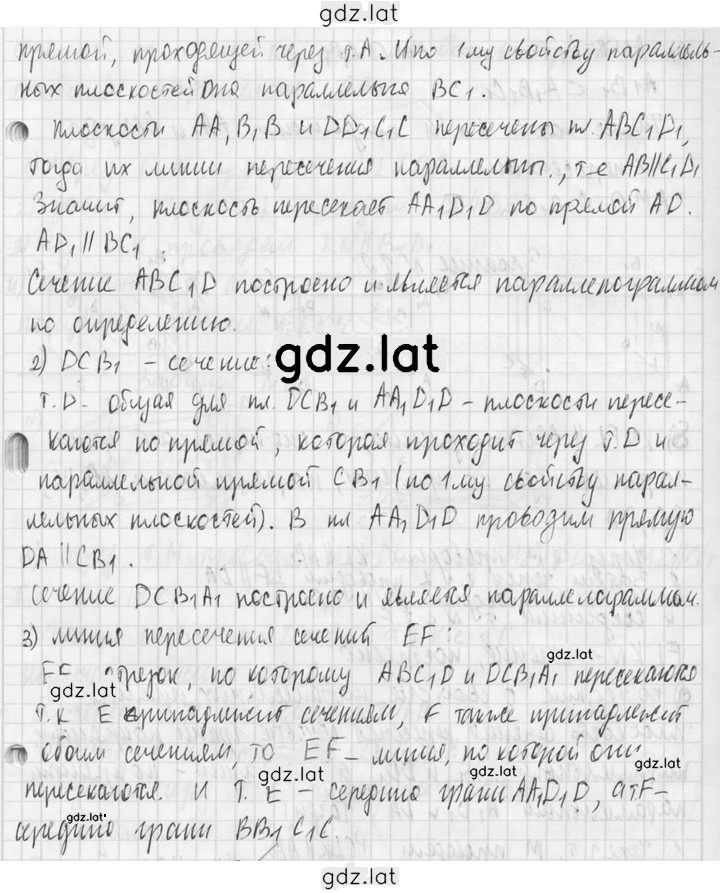 gdz.lat
прямой, проходящей через т.А. И по 1му свойству параллель-
ных плоскостей она параллельна BC₁.
Плоскости AA₁B₁B и DD₁C₁C пересечены пл. ABC₁D₁,
тогда их линии пересечения параллельны., т.е AB||C₁D₁
Значит, плоскость пересекает AA₁D₁D по прямой AD.
AD₁ || BC₁.
Сечение ABC₁D построено и является параллепограммом
по определению.
2) DCB₁ – сечение:
gdz.lat
т.D- общая для пл. DCB₁ и AA₁D₁D – плоскости пересе-
каются по прямой, которая проходит через т.D и
параллельной прямой CB₁ (по 1му свойству парал-
лельных плоскостей). В пл AA₁D₁D проводим прямую
DA || CB₁.
сечение DCB₁A₁ построено и является параллелограммом.
3) линия пересечения сечений EF:
gdz.lat
EF отрезок, по которому ABC₁D и DCB₁A₁ пересекаются
gdz.lat
т.к E принадлежит сечениям, F также принадлежит
обоим сечениям, то EF – линия, по которой они
gdz.lat
gdz.lat
пересекаются. И т. E – середина грани AA₁D₁D, а т.F-
gdz.lat
середина грани BB₁C₁C.
gdz.lat